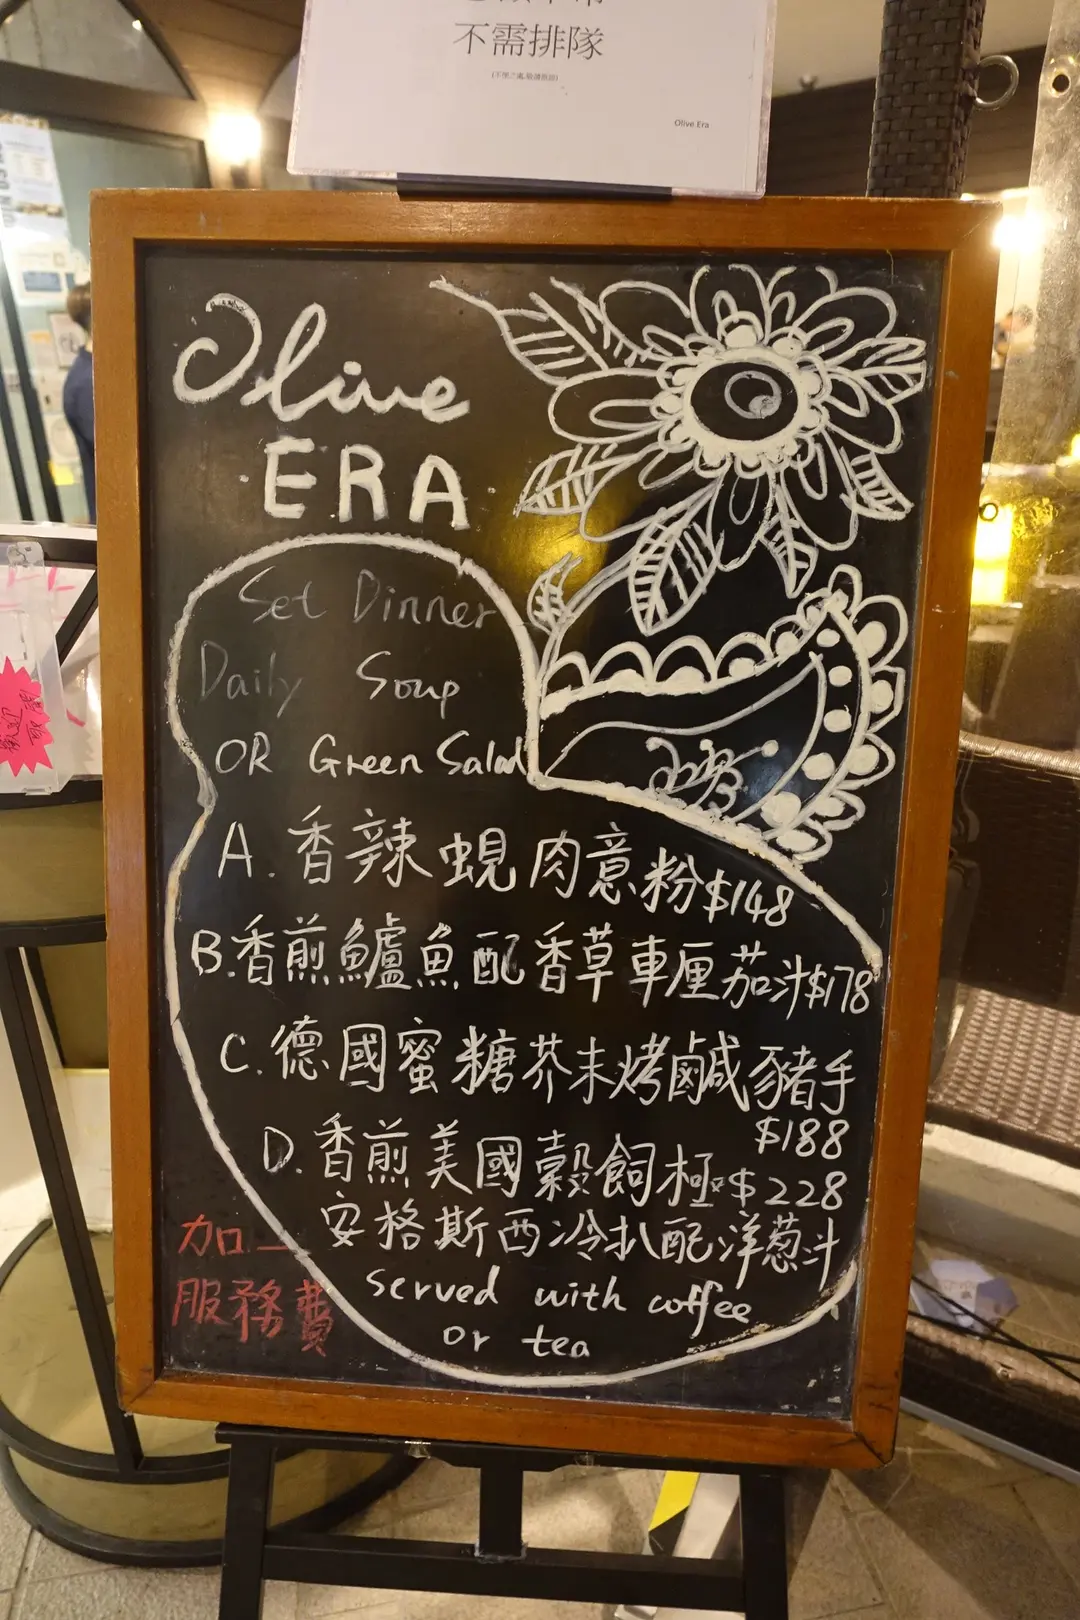 不需排隊
Olive Era
Olive
ERA
Set Dinner
Daily Soup
OR Green Salad
A. 香辣蜆肉意粉$148
B.香煎鱸魚配香草車厘茄汁$178
C.德國蜜糖芥末烤鹹豬手
$188
D.香煎美國穀飼極 $228
安格斯西冷扒配洋葱汁
served with coffee
or tea
加一
服務費